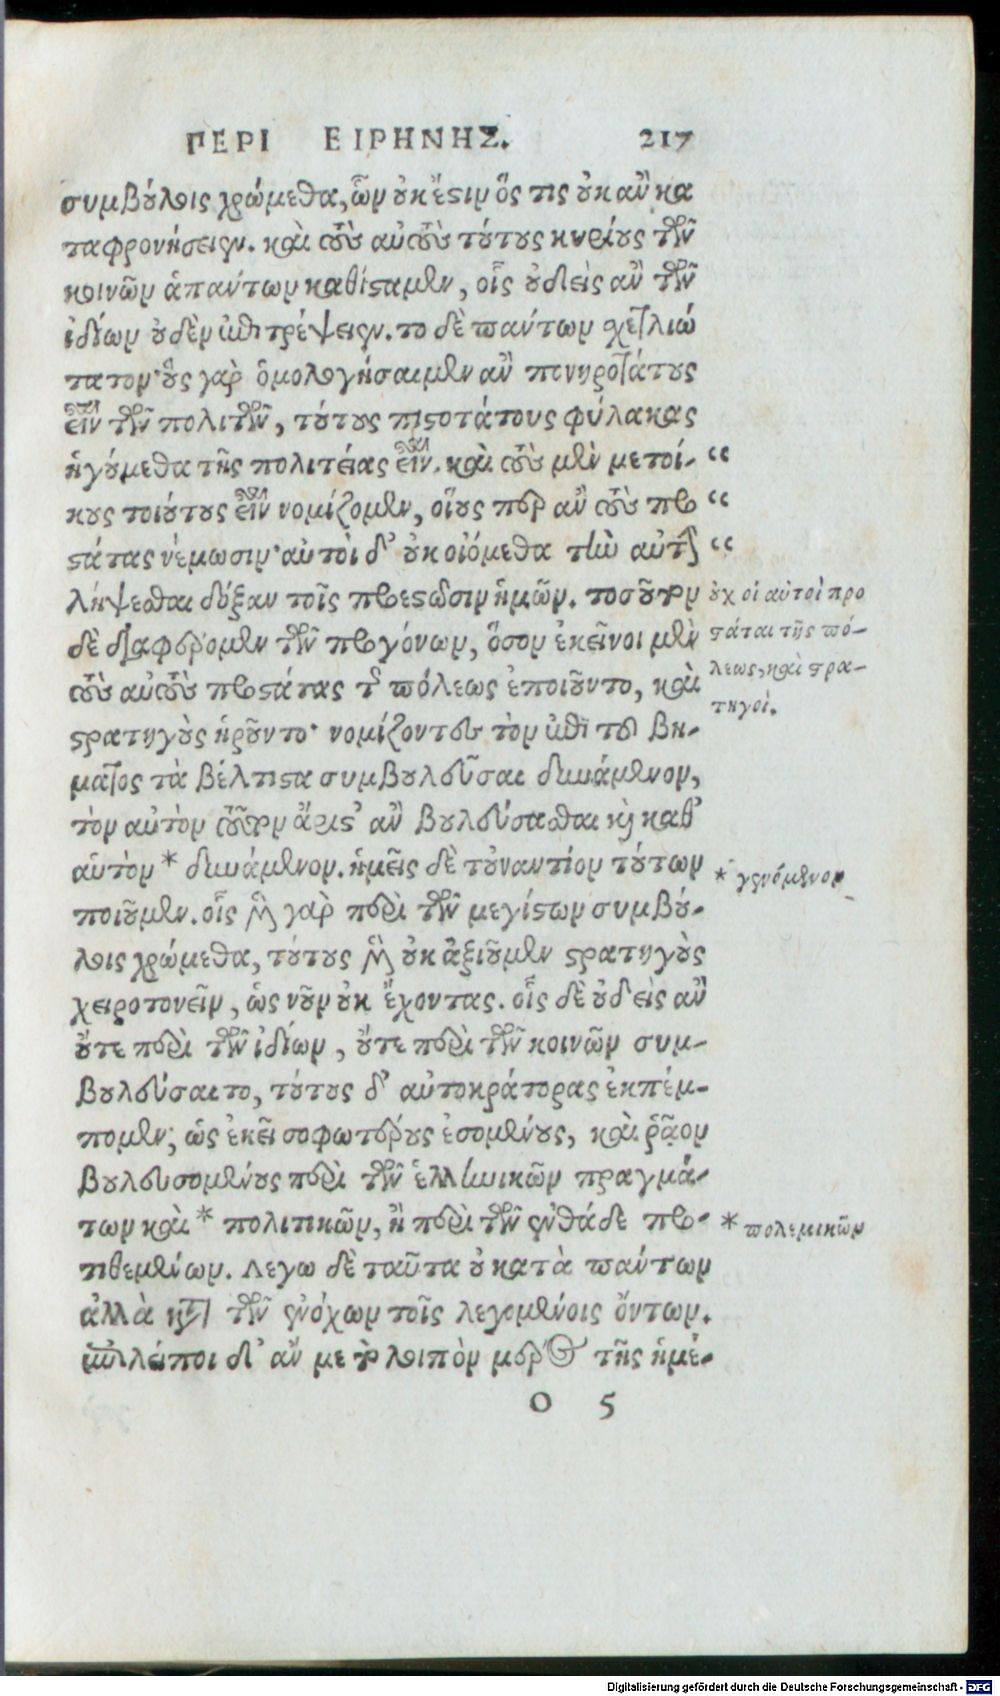 ΠΕΡΙ ΕΙΡΗΝΗΣ. 217
συμβύλοις χρώμεθα, ὧν ὐκ ἔςιν ὅς τις ὐκ ἂν κα
ταφρονήσειεν. καὶ τοὺς αὐτοὺς τύτυς κυρίυς τῶν
κοινῶν ἁπάντων καθίςαμεν, οἷς ὐδεὶς ἂν τῶν
ἰδίων ὐδὲν ἐπιτρέψειεν. το δὲ πάντων σχετλιώ
τατον· ὓς γὰρ ὁμολογήσαιμεν ἂν πονηροτάτυς
εἶναι τῶν πολιτῶν, τύτυς πιςοτάτους φύλακας
ἡγύμεθα τῆς πολιτείας εἶναι. καὶ τοὺς μὲν μετοί- “
κυς τοιύτυς εἶναι νομίζομεν, οἵυς περ ἂν τοὺς προ “
ςάτας νέμωσιν· αὐτοὶ δ' ὐκ οἰόμεθα τὴν αὐτὴν “
λήψεσθαι δόξαν τοῖς προεςῶσιν ἡμῶν. τοσῦτον
δὲ διαφέρομεν τῶν προγόνων, ὅσον ἐκεῖνοι μὲν
τοὺς αὐτοὺς προςάτας τῆς πόλεως ἐποιῦντο, καὶ
ςρατηγὺς ᾑρῦντο· νομίζοντες τὸν ἐπὶ τοῦ βή-
ματος τὰ βέλτιςα συμβυλεῦσαι δυνάμενον,
τὸν αὐτὸν τοῦτον ἄρις' ἂν βυλεύσασθαι καὶ καθ'
αὑτὸν * δυνάμενον. ἡμεῖς δὲ τὐναντίον τύτων
ποιῦμεν. οἷς μὲν γὰρ περὶ τῶν μεγίςων συμβύ-
λοις χρώμεθα, τύτυς μὲν ὐκ ἀξιῦμεν ςρατηγὺς
χειροτονεῖν, ὡς νῦν ὐκ ἔχοντας. οἷς δὲ ὐδεὶς ἂν
ὔτε περὶ τῶν ἰδίων, ὔτε περὶ τῶν κοινῶν συμ-
βυλεύσαιτο, τύτυς δ' αὐτοκράτορας ἐκπέμ-
πομεν; ὡς ἐκεῖ σοφωτέρυς ἐσομένυς, καὶ ῥᾷον
βυλευσομένυς περὶ τῶν ἑλληνικῶν πραγμά-
των καὶ * πολιτικῶν, ἢ περὶ τῶν ἐνθάδε προ-
τιθεμένων. λεγω δὲ ταῦτα ὐ κατὰ πάντων
ἀλλὰ κατὰ τῶν ἐνόχων τοῖς λεγομένοις ὄντων.
ἐπιλείποι δ' ἄν με τὸ λοιπὸν μέρος τῆς ἡμέ-
Ο 5
ὐχ οἱ αὐτοὶ προ
ςάται τῆς πό-
λεως, καὶ ςρα-
τηγοί.
* γενόμενον
* πολεμικῶν
Digitalisierung gefördert durch die Deutsche Forschungsgemeinschaft - DFG